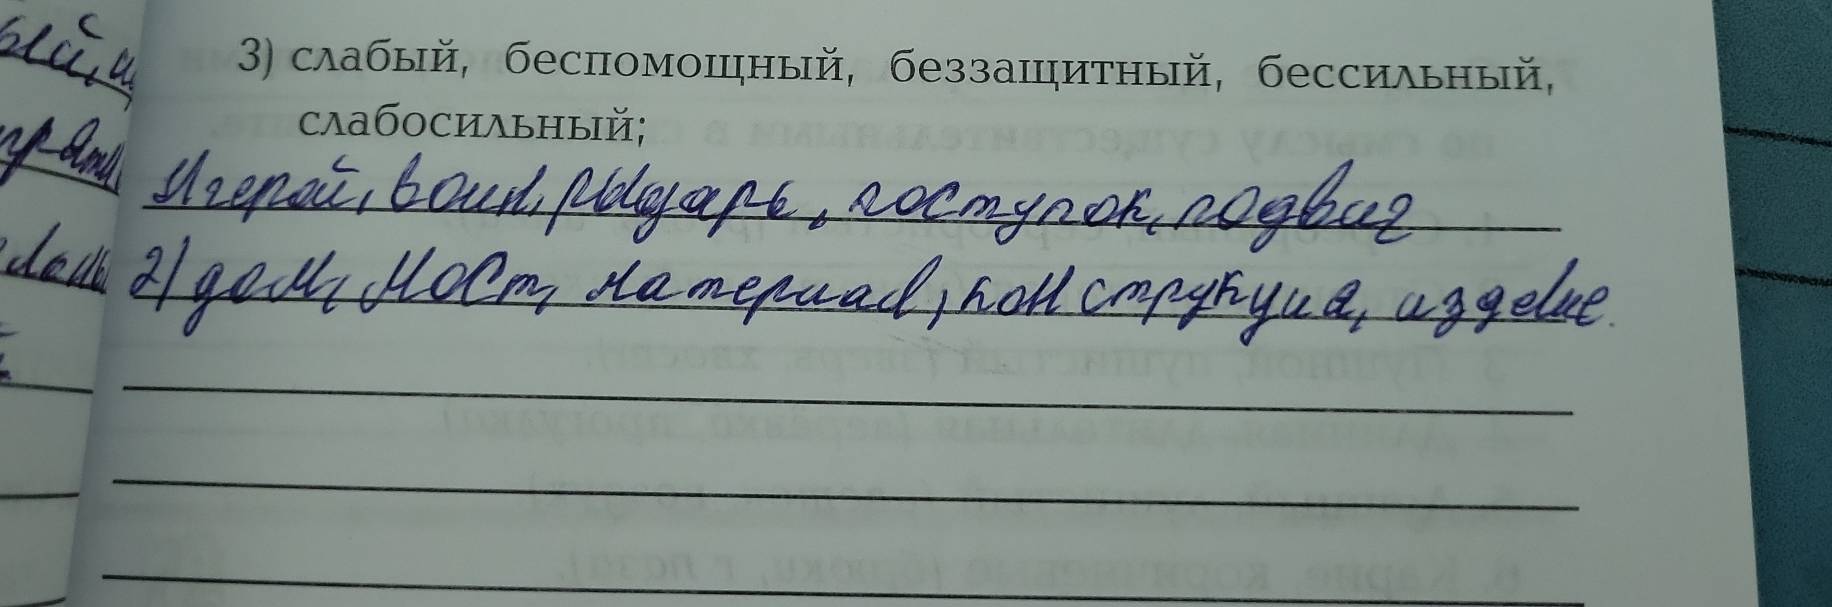 3) слабый, беспомощный, беззащитный, бессильный,
слабосильный;
1) герой, воин, рыцарь, поступок, подвиг
2) дом, мост, материал, конструкция, изделие.